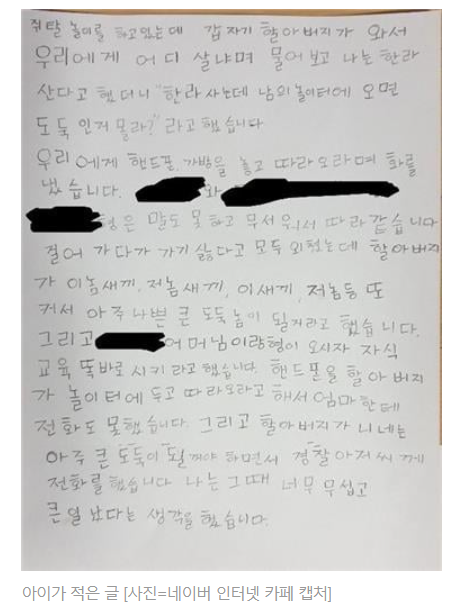 쥐탈 놀이를 하고있는데 갑자기 할아버지가 와서
우리에게 어디 살냐며 물어보고 나는 한라
산다고 했더니 "한라사는데 남의놀이터에 오면
도둑인거 몰라?" 라고했습니다
우리에게 핸드폰, 가방을 놓고 따라오라며 화를
냈습니다. 와
형은 말도 못하고 무서워서 따라갔습니다
걸어가다가 가기 싫다고 모두 외쳤는데 할아버지
가 이놈새끼, 저놈새끼, 이새끼, 저놈등 또
커서 아주나쁜 큰 도둑놈이 될거라고 했습니다.
그리고 어머님이랑형이 오시자 자식
교육 똑바로 시키라고했습니다. 핸드폰을 할아버지
가 놀이터에 두고 따라오라고 해서 엄마한테
전화도 못했습니다. 그리고 할아버지가 니네는
아주 큰 도둑이 될꺼야 하면서 경찰아저씨께
전화를 했습니다 나는 그때 너무 무섭고
큰일 났다는 생각을 했습니다.
아이가 적은 글 [사진=네이버 인터넷 카페 캡처]